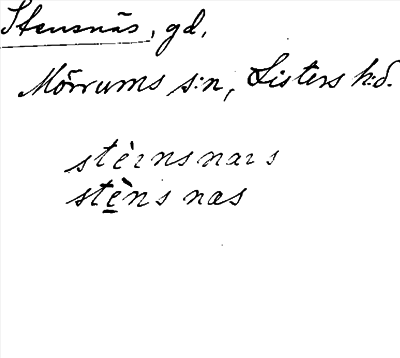 Stensnäs, gd,
Mörrums s:n, Listers h:d.
stèrnsnars
stèns næs